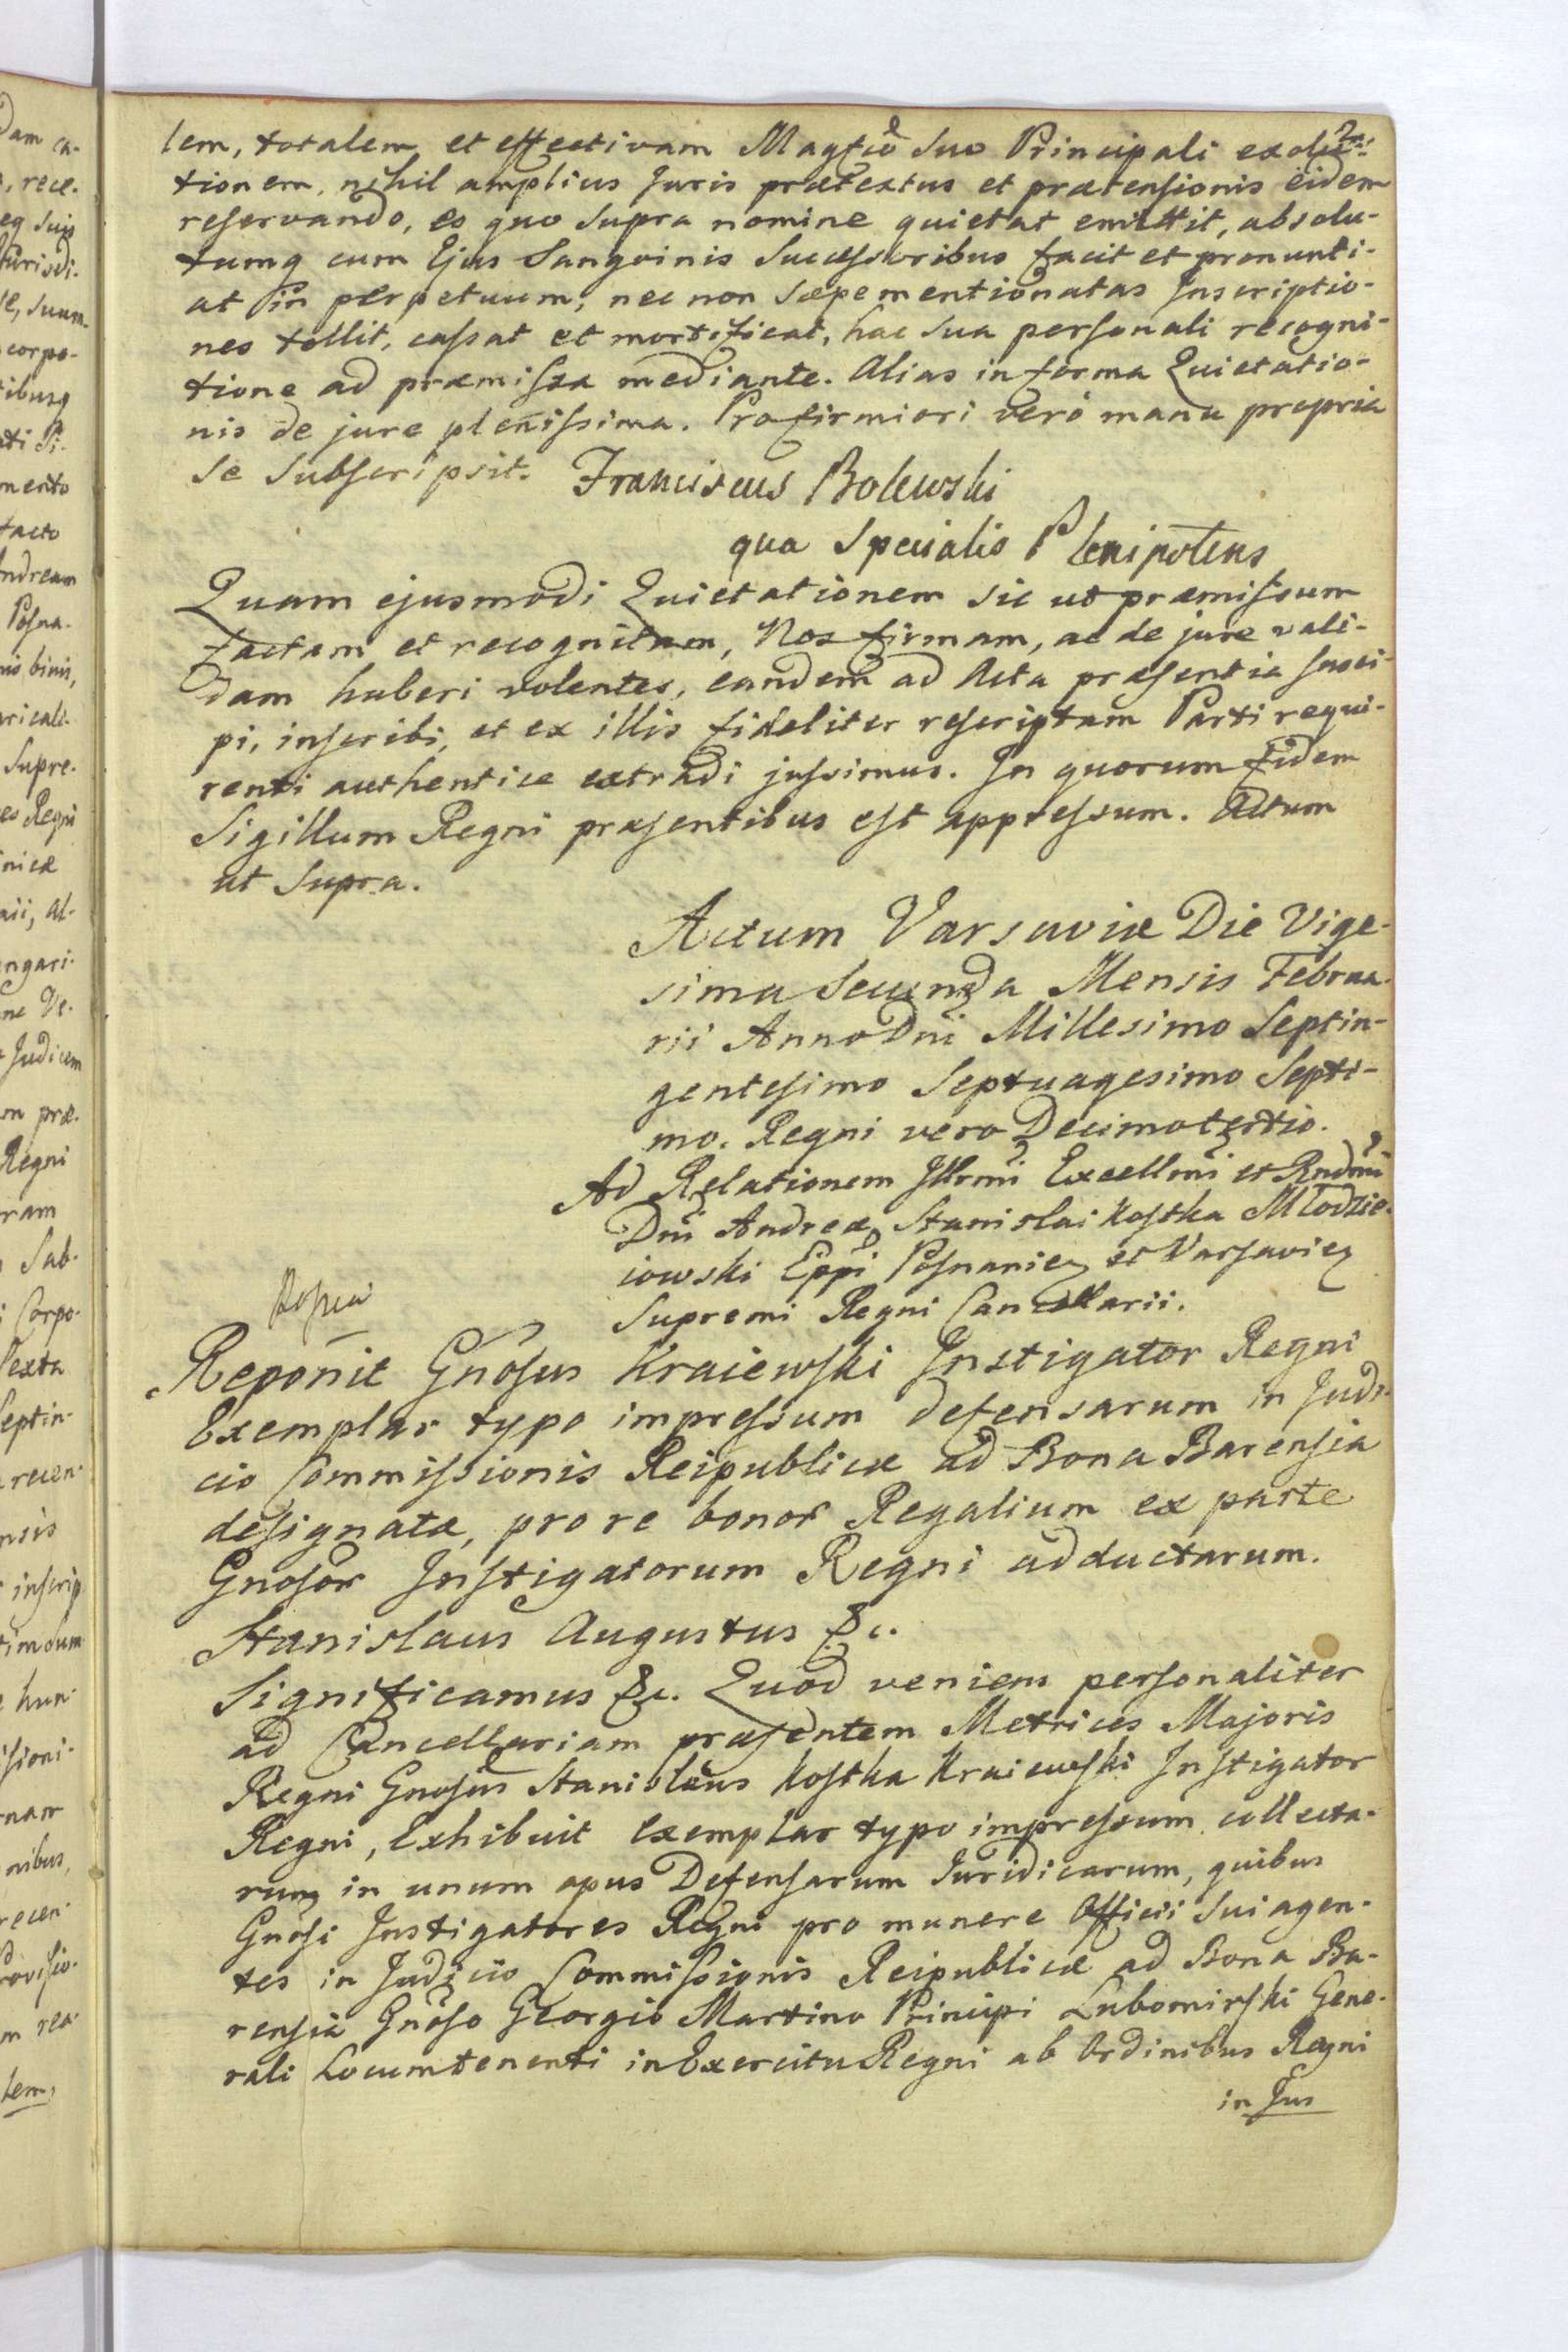 lem, totalem et effectivam Magfco Suo Principali exolu-
tionem, nihil amplius Juris prætextus et prætensionis eidem
reservando, eo quo Supra nomine quietat emittit, absolu-
tumq cum Ejus Sangvinis Successoribus facit et pronunti-
at in perpetuum; nec non Sæpementionatas Inscriptio-
nes tollit, cassat et mortificat, hac Sua personali recogni-
tione ad præmissa mediante. Alias in forma Quietatio-
nis de jure plenissima. Pro firmiori vero manu propria
Se Subscripsit. Franciscus Bolewski
qua Specialis Plenipotens
Quam ejusmodi Quietationem sic ut præmissum
factam et recognitam, Nos firmam, ac de jure vali-
dam haberi volentes, eandem ad Acta præsentia susci-
pi, inscribi, et ex illis fideliter rescriptam Parti requi-
renti authentice extradi jussimus. In quorum fidem
Sigillum Regni præsentibus est appressum. Actum
ut Supra.
Actum Varsaviæ Die Vige-
sima Secunda Mensis Februa-
rii Anno Dni Millesimo Septin-
gentesimo Septuagesimo Septi-
mo. Regni vero Decimotertio.
Ad Relationem Illrmi Excellmi et Rndmi
Dni Andreæ Stanislai Kostka Młodzie-
iowski Eppi Posnanien et Varsavien
Supremi Regni Cancellarii.
Reponit Gnosus Kraiewski Instigator Regni
Exemplar typo impressum defensarum in Judi-
cio Commissionis Reipublicæ ad Bona Barensia
designatæ, pro re bonor Regalium ex parte
Gnosor Instigatorum Regni adductarum.
Stanislaus Augustus &c.
Significamus &c. Quod veniens personaliter
ad Cancellariam præsentem Metrices Majoris
Regni Gnosus Stanislaus Kostka Kraiewski Instigator
Regni, Exhibuit exemplar typo impressum collecta-
rum in unum opus Defensarum Juridicarum, quibus
Gnosi Instigatores Regni pro munere Officii Sui agen-
tes in Judicio Commissionis Reipublicæ ad Bona Ba-
rensia Gnoso Georgio Martino Principi Lubomirski Gene-
rali Locumtenenti in Exercitu Regni ab Ordinibus Regni
in Jus